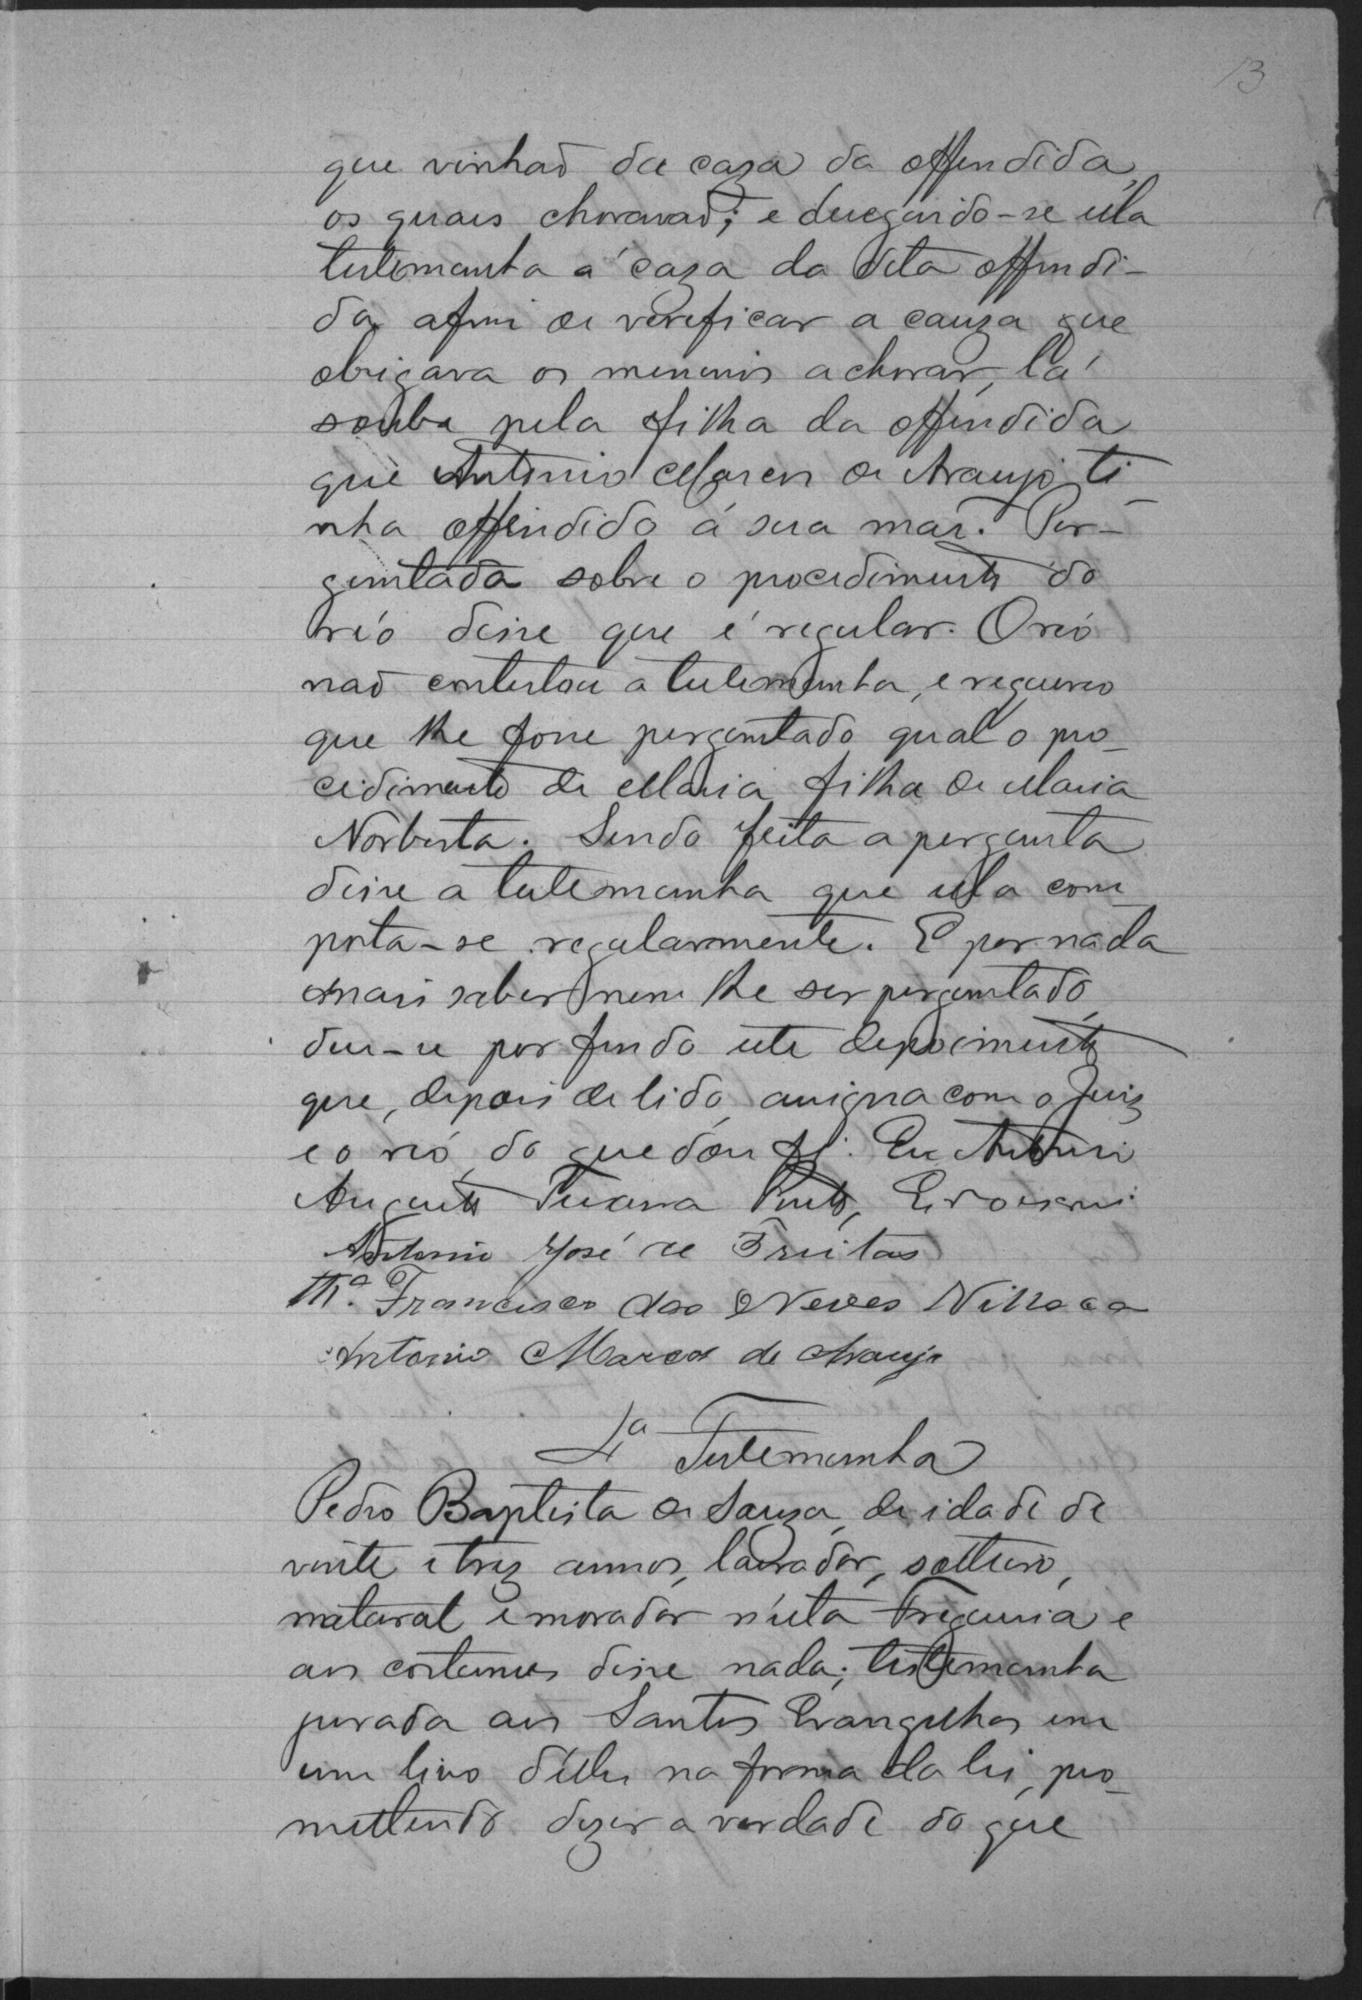 13
que vinhaõ da caza da offendida,
os quaes choravaõ; e deregindo-se ella
testemunha á caza da dita offendi-
da, afim de verificar a cauza que
obrigava os meninos a chorar, lá
soube pela filha da offendida
que Antonio Marcos de Araujo ti-
nha offendido á sua mai. Per-
guntada sobre o procedimento do
réo disse que é regular. O reó
naõ contestou a testemunha, e requereo
que lhe fosse perguntado qual o pro-
cedimento de Maria filha de Maria
Norberta. Sendo feita a pergunta
disse a testemunha que ella com
porta-se regularmente. E por nada
mais saber nem lhe ser perguntado,
deu-se por findo este depoimento
que, depois de lido, assigna com o Juiz
e o reó, do que dou fé. Eu Antonio
Augusto Pinto, Escrivaõ escrevi
Antonio José de Freitas
Francisco das Neves
Antonio Marcos de Araujo
4ª Testemunha
Pedro Baptista de Souza, de idade de
vinte e trez annos, lavrador, solteiro,
natural e morador n'esta Freguesia e
aos costumes disse nada; testemunha
jurada aos Santos Evangelhos em
um livro d'elles na forma da lei, pro-
mettendo dizer a verdade do que